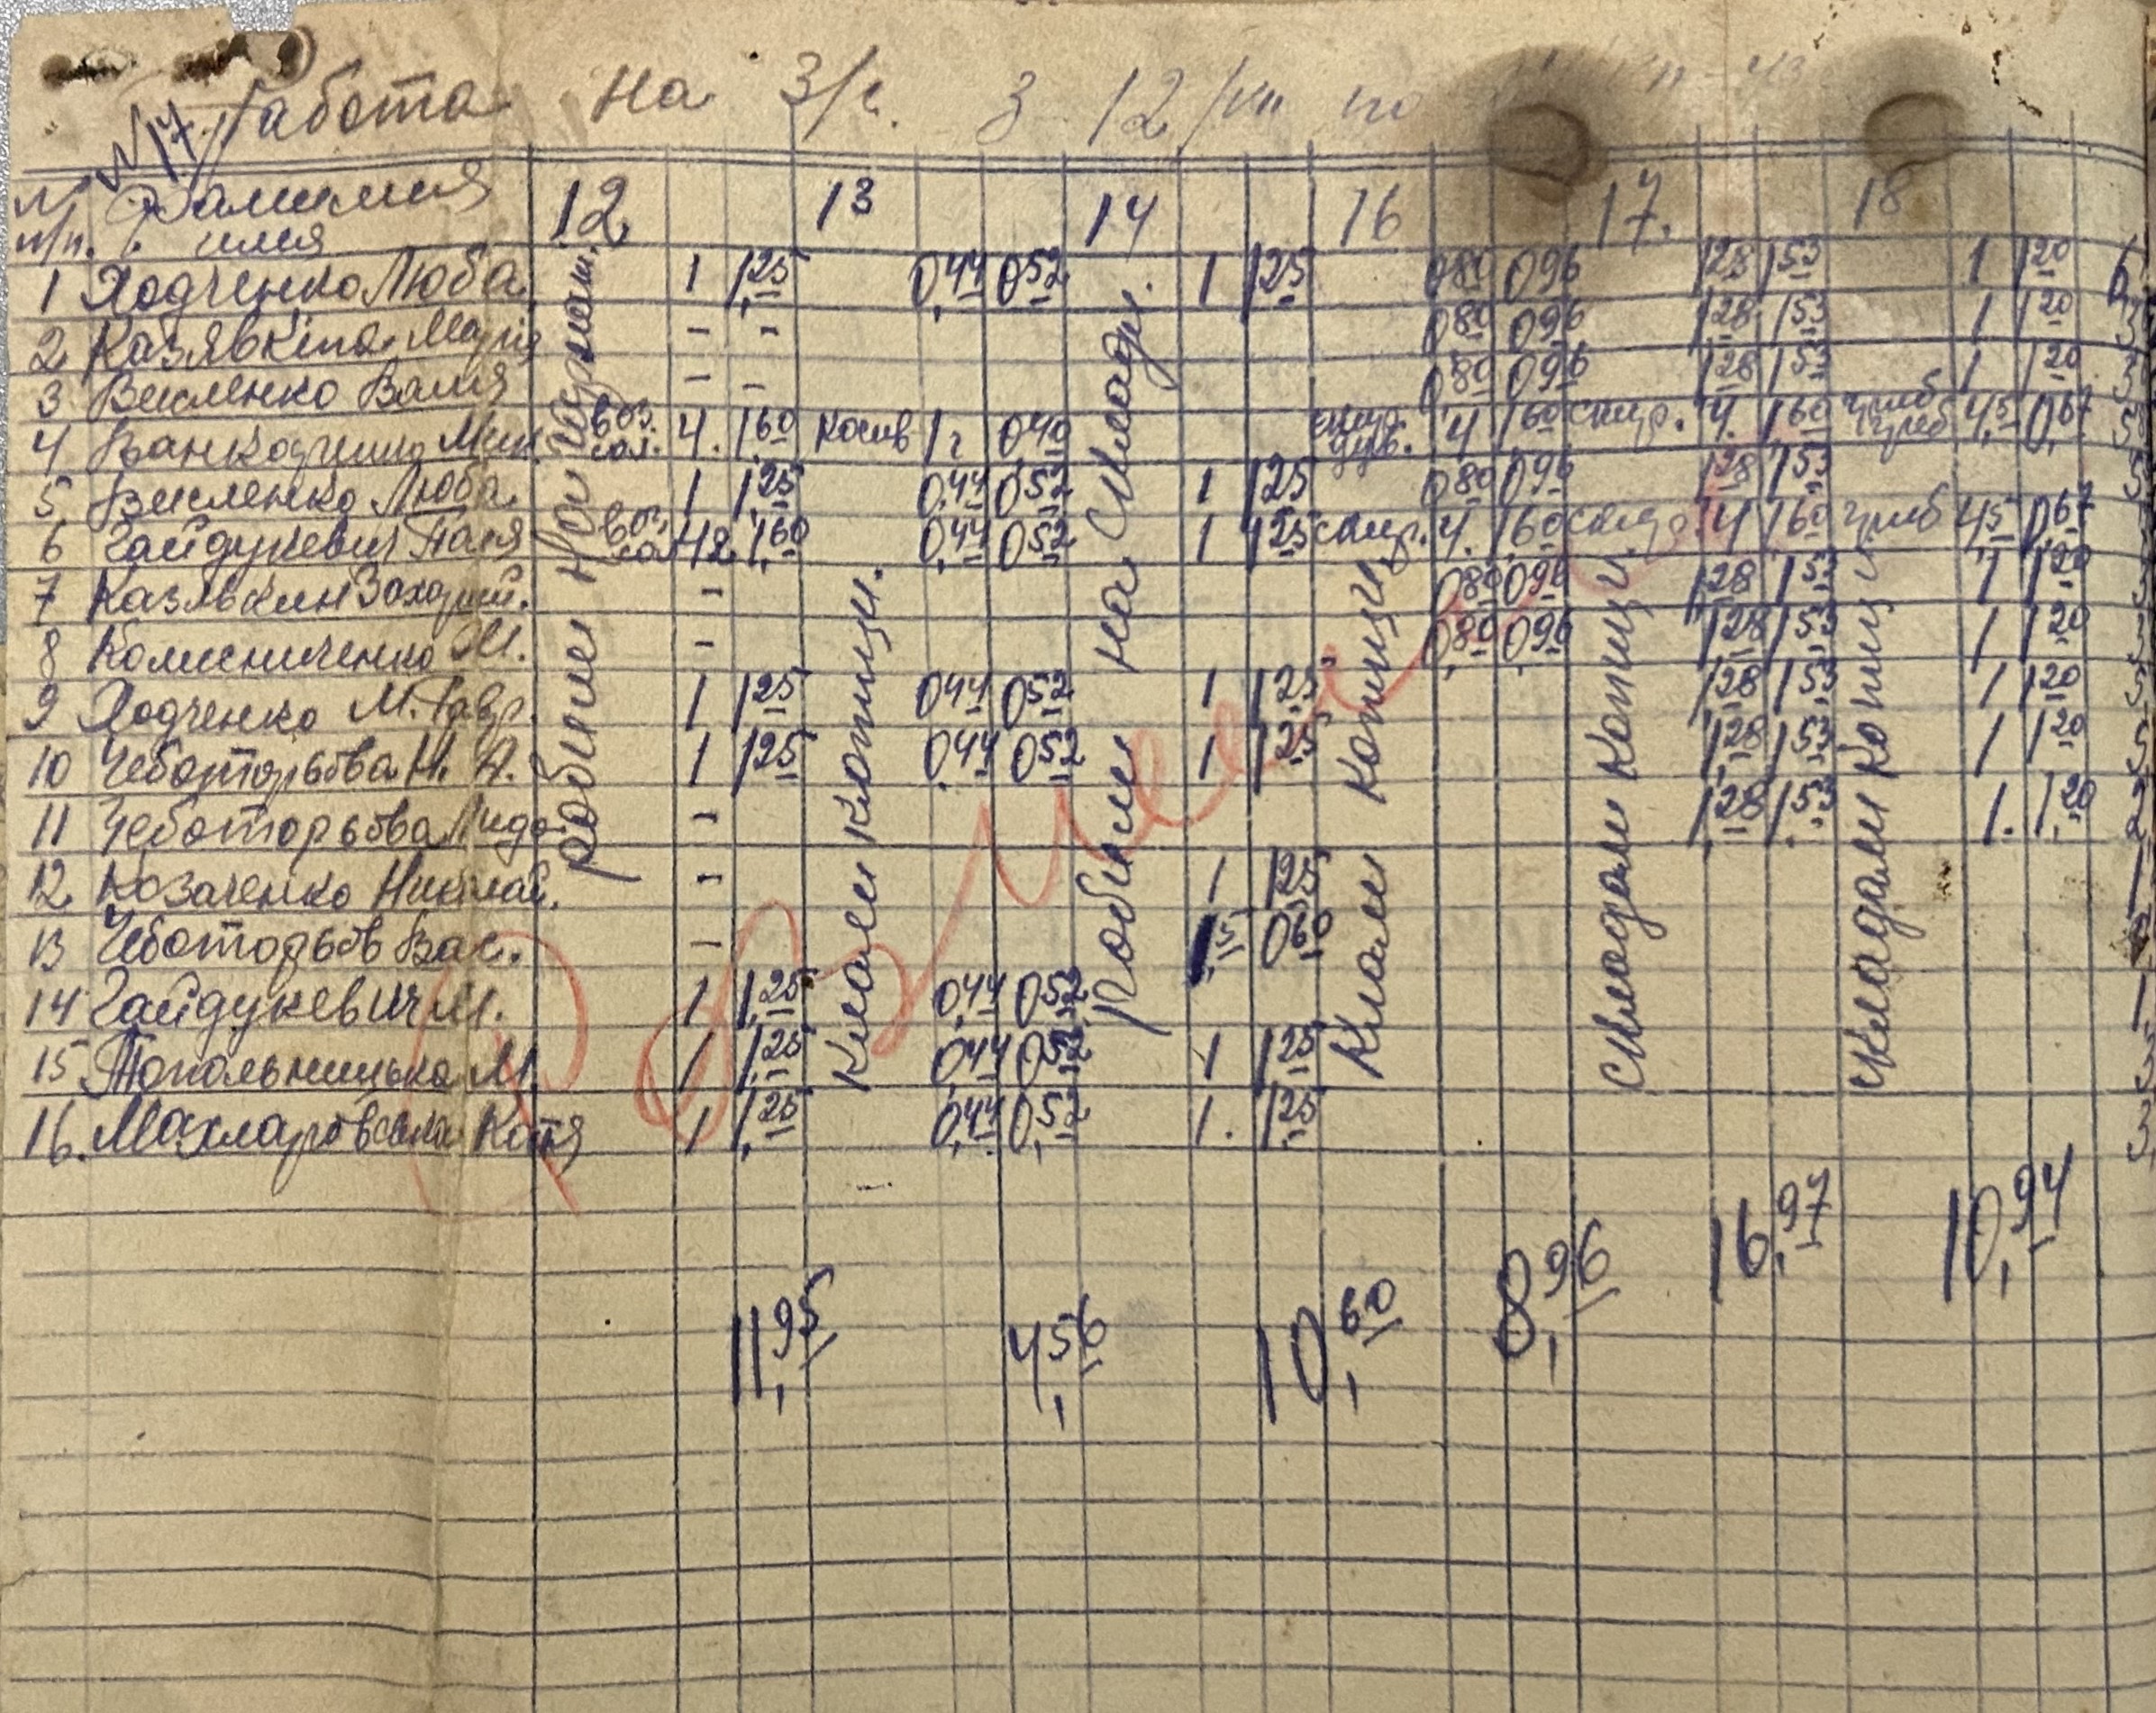 №17. Работа на З/г. З 12/VII по
№ п/п. Фамилия имя 12 13 14 16 17. 18
1 Ходченко Люба 1 1,25 0,44 0,52 1 1,25 0,80 0,96 1,28 1,53 1 1,20
2 Казявкіна Марія - - 0,80 0,96 1,28 1,53 1 1,20
3 Висленко Валя - - 0,80 0,96 1,28 1,53 1 1,20
4 воз. 4. 1,60 косив 1г 0,40 4 1,60 скир. 4. 1,60 4,5 0,67
5 Висленко Люба. 1 1,25 0,44 0,52 1 1,25 0,80 0,96 1,28 1,53
6 Гайдукевич Паня воз. 1,60 0,44 0,52 1 1,25 скир. 4. 1,60 скирд. 4 1,60 4,5 0,67
7 Казявкин Захарий. - 0,80 0,96 1,28 1,53 1 1,20
8 Колисниченко М. - 0,80 0,96 1,28 1,53 1 1,20
9 Ходченко М. Гавр. 1 1,25 0,44 0,52 1 1,25 1,28 1,53 1 1,20
10 Чеботорьова Н. А. 1 1,25 0,44 0,52 1 1,25 1,28 1,53 1 1,20
11 Чеботорьова Лида - 1,28 1,53 1. 1,20
12 Козаченко Николай. - 1 1,25
13 Чеботорьов Вас. - 1,5 0,60
14 Гайдукевич М. 1 1,25 0,44 0,52
15 Топольницька М. 1 1,25 0,44 0,52 1 1,25
16. Махларовська Катя 1 1,25 0,44 0,52 1. 1,25
робили на
Клали копици.
Робили на складі.
Клали копиці
складали копиці
складали копиці
11,95 4,56 10,60 8,96 16,97 10,94